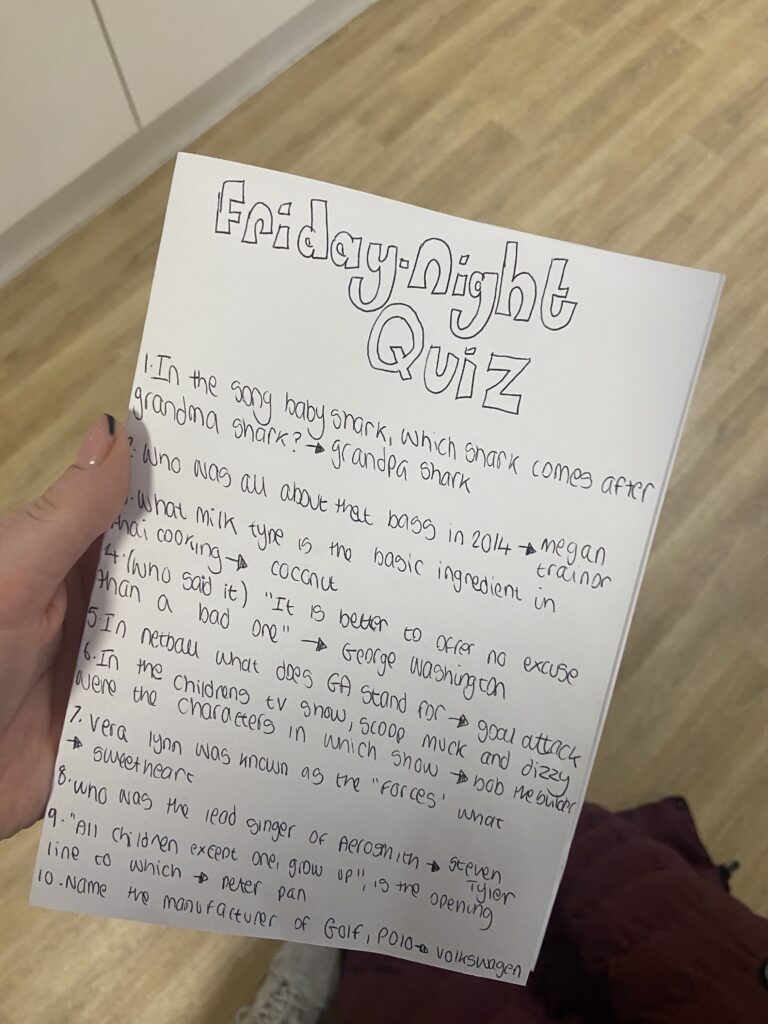 Friday-Night
Quiz
1. In the song baby shark, which shark comes after
grandma shark? → grandpa shark
2. Who was all about that bass in 2014 → megan
trainor
. What milk type is the basic ingredient in
thai cooking → coconut
4. (who said it) "It is better to offer no excuse
than a bad one" → George Washington
5. In netball what does GA stand for → goal attack
6. In the childrens tv show, scoop muck and dizzy
were the characters in which show → bob the builder
7. Vera lynn was known as the "Forces' what
→ sweetheart
8. who was the lead singer of Aerosmith → Steven
Tyler
9. "All children except one, grow up", is the opening
line to which → peter pan
10. Name the manufacturer of Golf, Polo → volkswagen